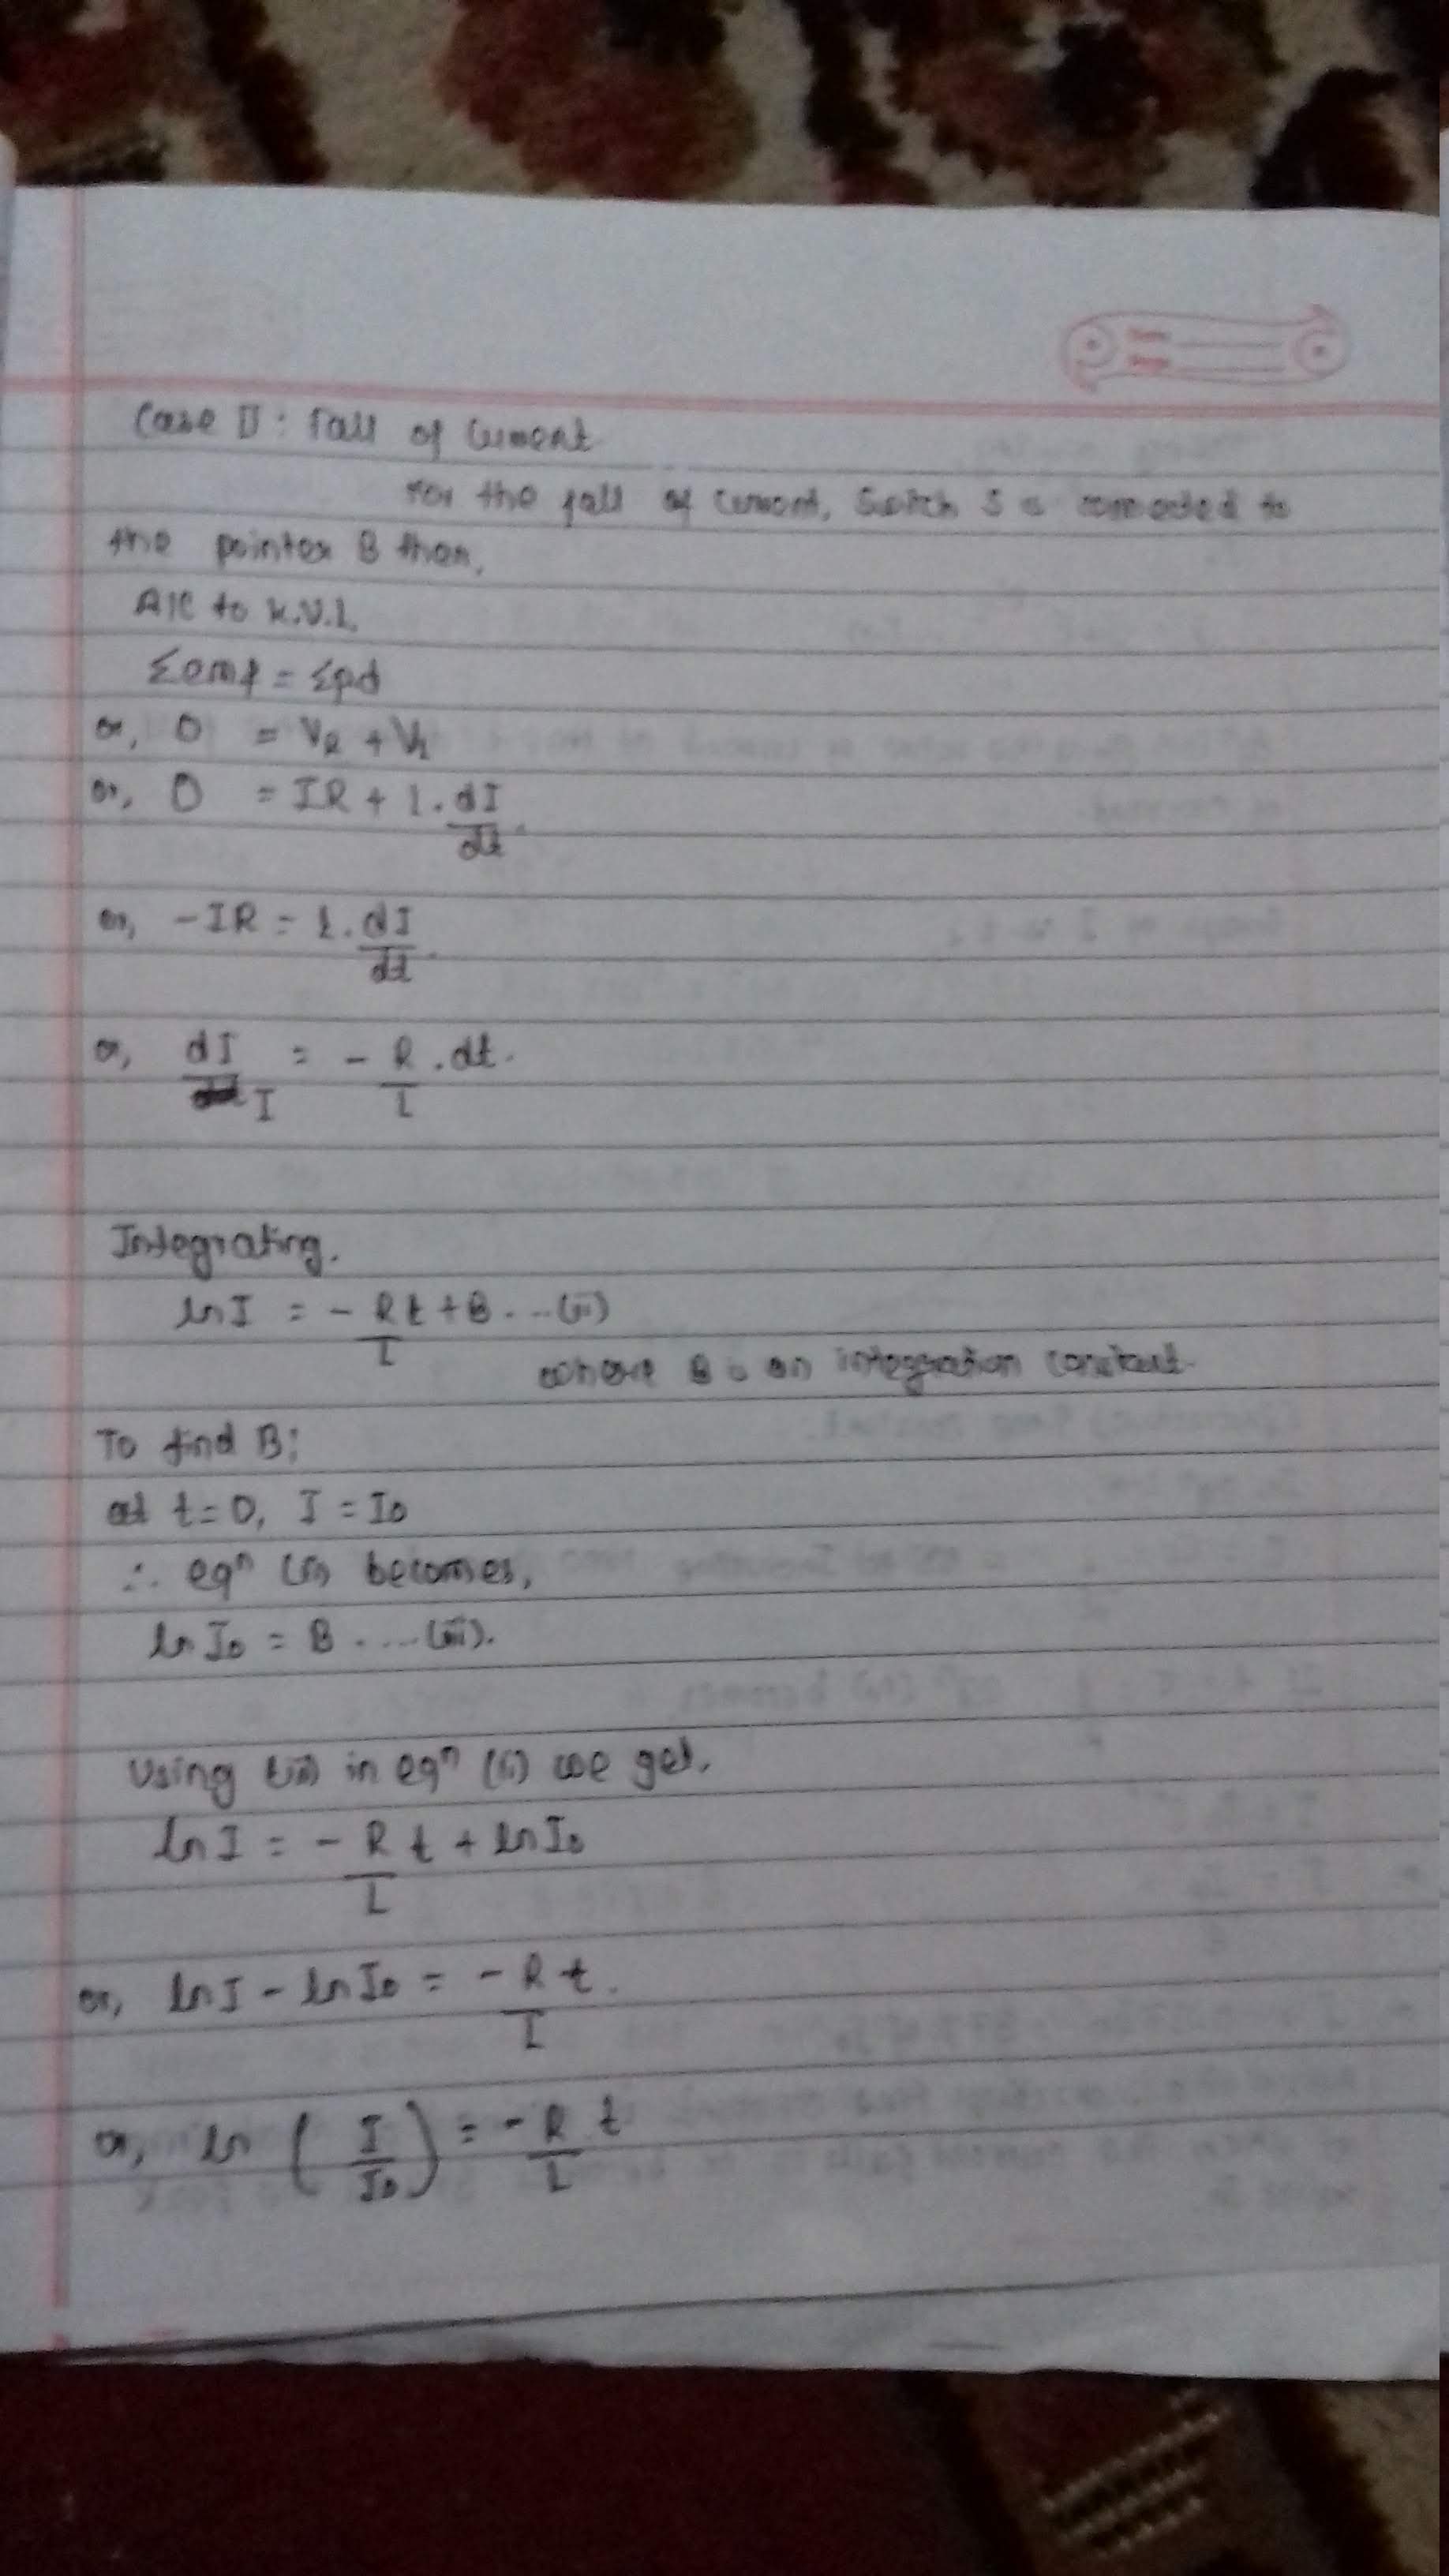 Case II: Fall of Current
For the fall of current, Switch S is connected to
the pointer B then,
A/C to K.V.L
Σemf = Σpd
or, 0 = V_R + V_L
or, 0 = IR + L. dI/dt.
or, -IR = L. dI/dt.
or, dI/I = - R/L .dt.
Integrating.
ln I = - R/L t + B . ...(ii)
where B is an integration constant.
To find B:
at t=0, I = I₀
∴ eqⁿ (ii) becomes,
ln I₀ = B ....(iii).
Using (iii) in eqⁿ (ii) we get,
ln I = - R/L t + ln I₀
or, ln I - ln I₀ = - R/L t.
or, ln (I/I₀) = - R/L t